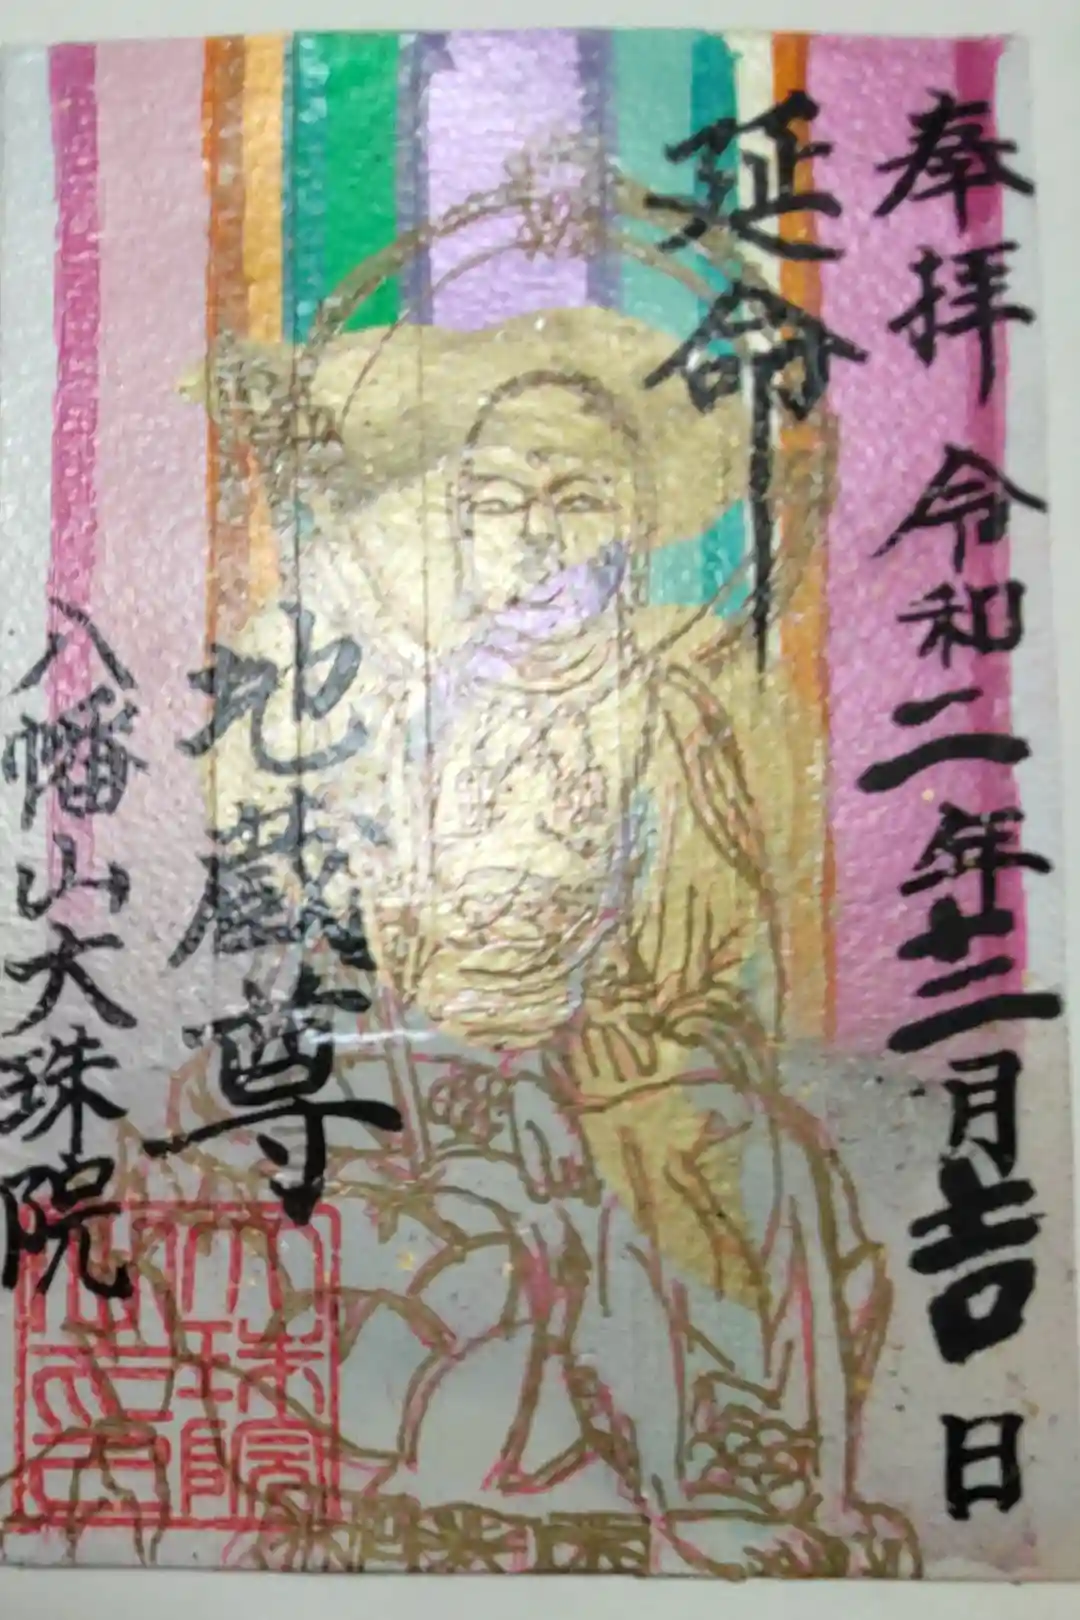 奉拝 令和二年十二月吉日
延命
地蔵尊
八幡山大珠院